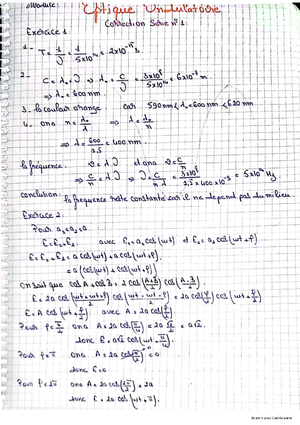 Optique Ondulatoire
Correction Série n° 1
Exercice 1
1 - T = 1/ν = 1/5x10^14 = 2x10^-15 s
2 - c = λ₀ν ⇒ λ₀ = c/ν = 3x10^8/5x10^14 = 6x10^-7 m
⇒ λ₀ = 600 nm
3 - la couleur orange car 590nm < λ₀ = 600nm < 620nm
4 - on a n = λ₀/λ ⇒ λ = λ₀/n
⇒ λ = 600/1,5 = 400 nm
la fréquence : v = λν d'ana v = c/n
⇒ c/n = λν ⇒ ν = c/nλ = 3x10^8/1,5x400x10^-9 = 5x10^14 Hz
conclusion : la fréquence reste constante car il ne dépend pas du milieu.
Exercice 2
Pour a₁=a₂=a
E = E₁+E₂ avec E₁ = a₁ cos(wt) et E₂ = a₂ cos(wt+φ)
E = E₁+E₂ = a cos(wt) + a cos(wt+φ)
= a(cos(wt) + cos(wt+φ))
on sait que cos A + cos B = 2 cos(A+B/2) cos(A-B/2)
E = 2a cos(wt+wt+φ/2) cos(wt-wt-φ/2) = 2a cos(φ/2) cos(wt+φ/2)
E = A cos(wt+φ/2) avec A = 2a cos(φ/2)
Pour φ=π/2 on a A = 2a cos(π/4) = 2a √2/2 = a√2
donc E = a√2 cos(wt+π/4)
Pour φ=π on a A = 2a cos(π/2) = 0
donc E=0
Pour φ=2π on a A = 2a cos(2π/2) = 2a
donc E = 2a cos(wt+π).